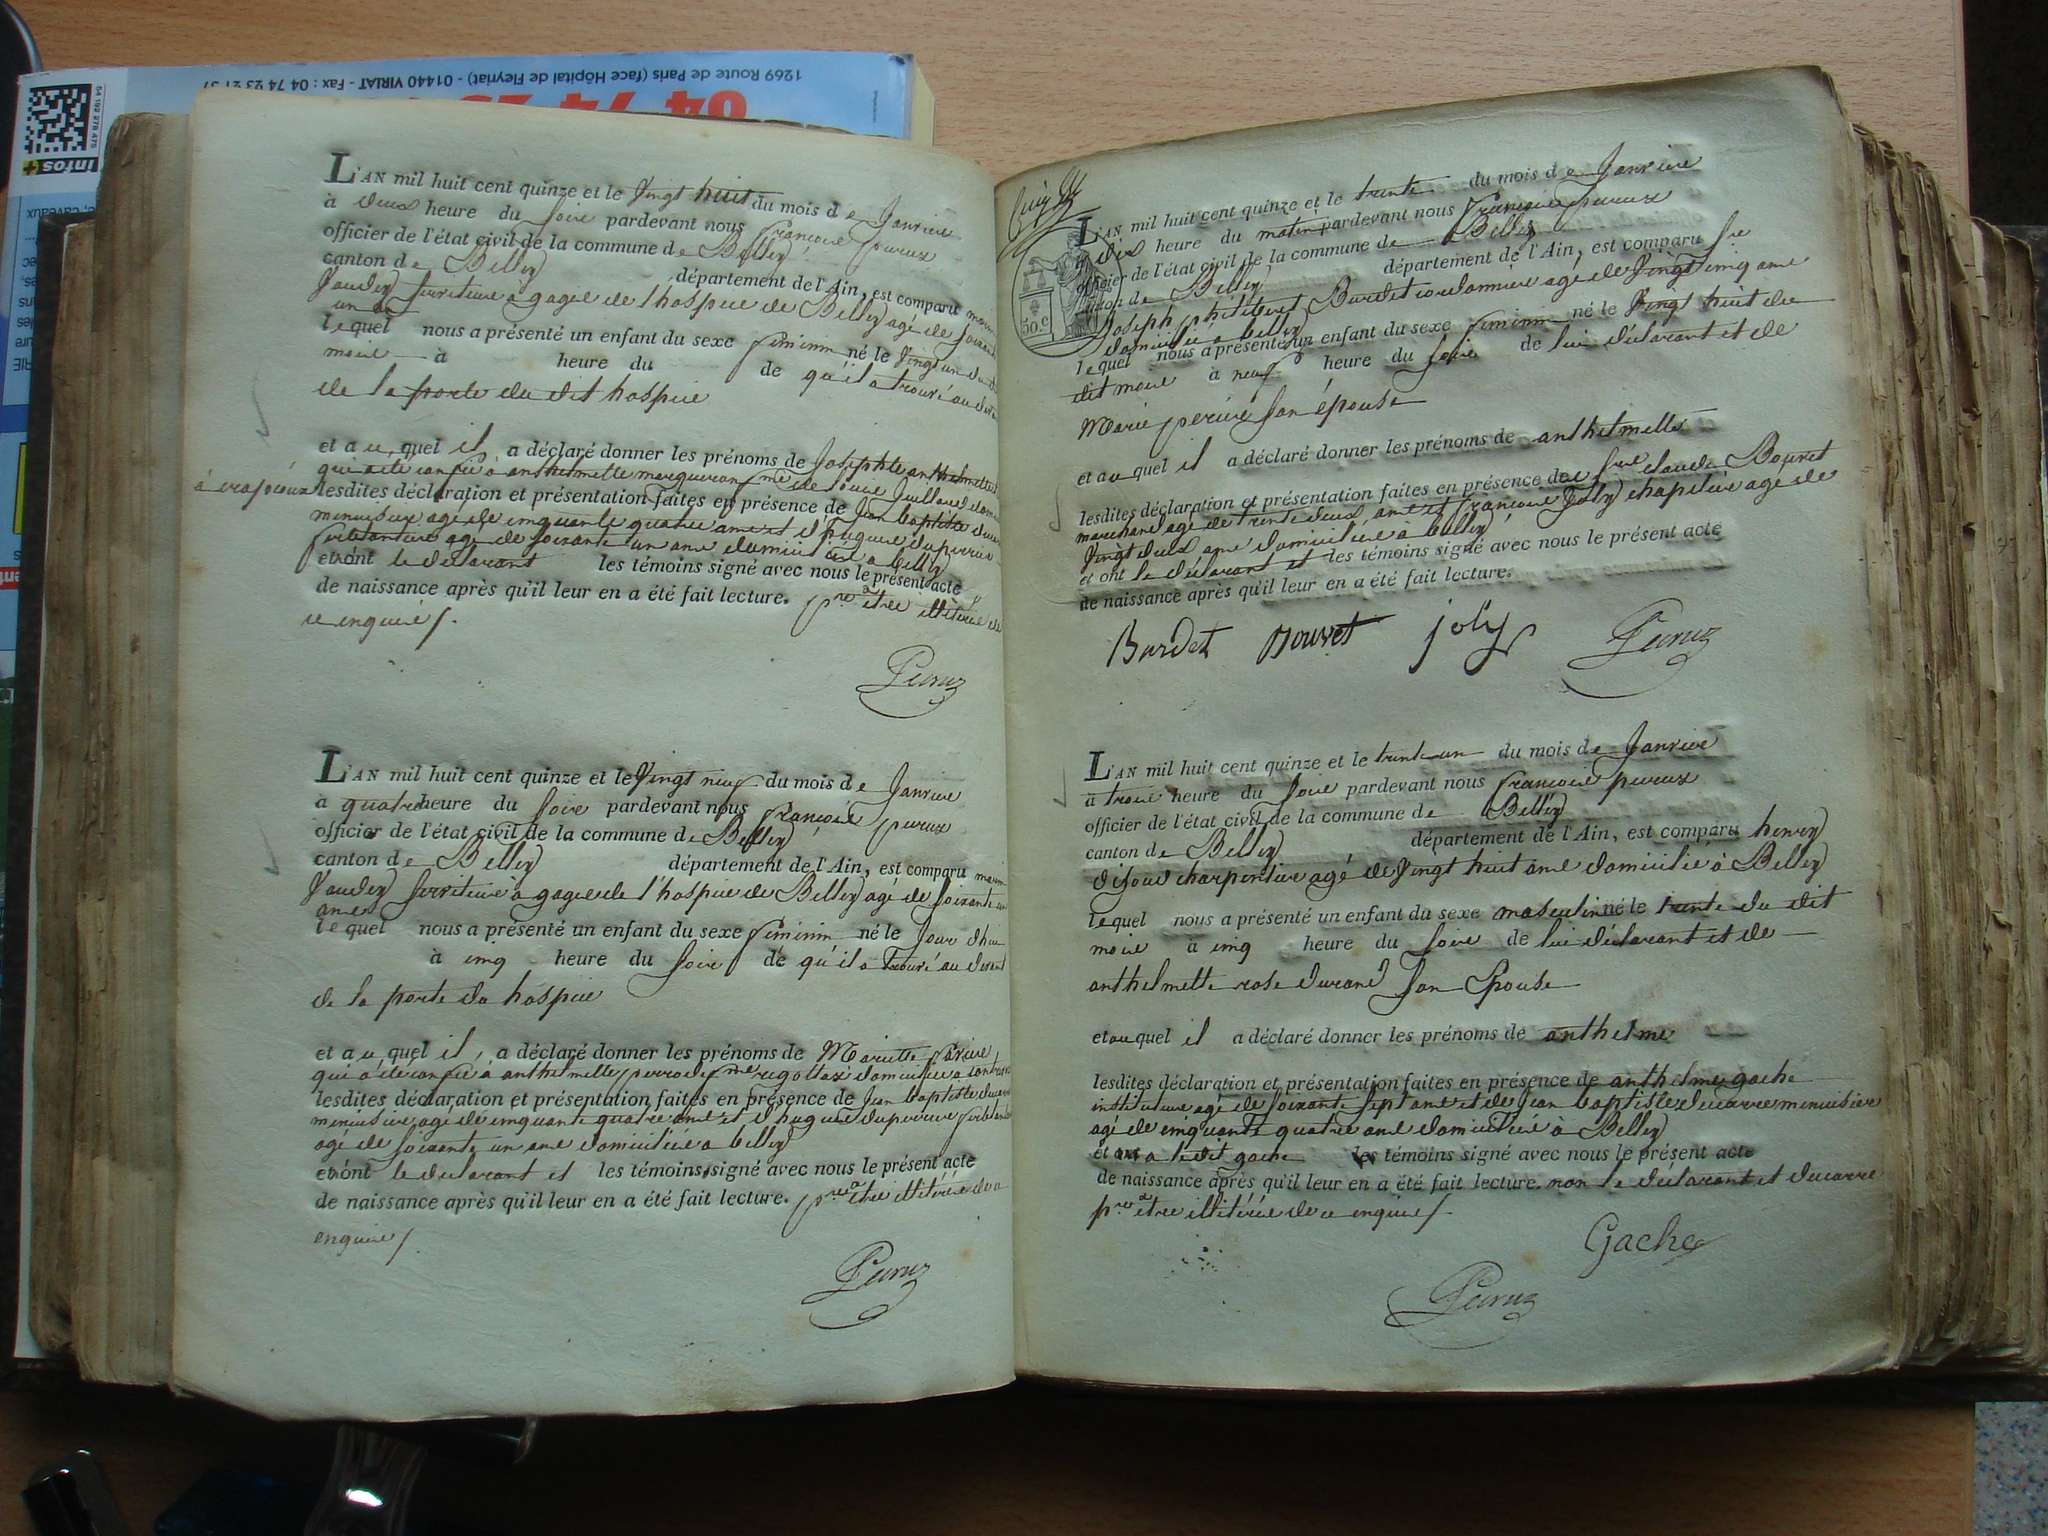 1269 Route de Paris (face Hôpital de Fleyriat) - 01440 VIRIAT - Fax : 04 74 23 21 57
infos+
L'AN mil huit cent quinze et le Vingt huit du mois de Janvier
à deux heure du soir pardevant nous françois peruz
officier de l'état civil de la commune de Belley
canton de Belley département de l'Ain, est comparu
serviteur à gages de l'hospice de Belley agé de soixante
un an
lequel nous a présenté un enfant du sexe feminin né le Vingt un du
mois à heure du de qu'il a trouvé au devant
de la porte du dit hospice
et au quel il a déclaré donner les prénoms de Josephte anthelmette
qui a été confié à anthelmette
lesdites déclaration et présentation faites en présence de Jean baptiste
menuisier agé de cinquante quatre ans et d'hugues duperrier
agé de soixante un ans domiciliés à belley
et ont le déclarant les témoins signé avec nous le présent acte
de naissance après qu'il leur en a été fait lecture. pr etre illitérés de
ce enquis /.
Peruz
L'AN mil huit cent quinze et le Vingt neuf du mois de Janvier
à quatre heure du soir pardevant nous françois peruz
officier de l'état civil de la commune de Belley
canton de Belley département de l'Ain, est comparu
serviteur à gages de l'hospice de Belley agé de soixante un
ans
lequel nous a présenté un enfant du sexe feminin né le Jour d'hier
à cinq heure du soir de qu'il a trouvé au devant
de la porte du hospice
et au quel il a déclaré donner les prénoms de Mariette
qui a été confié à anthelmette domiciliée à
lesdites déclaration et présentation faites en présence de Jean baptiste ducarre
menuisier agé de cinquante quatre ans et d'hugues duperrier
agé de soixante un ans domiciliés à belley
et ont le déclarant et les témoins signé avec nous le présent acte
de naissance après qu'il leur en a été fait lecture. pr etre illitérés de ce
enquis /.
Peruz
50. c
L'AN mil huit cent quinze et le trente du mois de Janvier
à dix heure du matin pardevant nous françois peruz
officier de l'état civil de la commune de Belley
canton de Belley département de l'Ain, est comparu sr
Joseph philibert Burdet cordonnier agé de Vingt cinq ans
domicilié à belley
lequel nous a présenté un enfant du sexe feminin né le Vingt huit du
dit mois à neuf heure du soir de lui déclarant et de
Marie son épouse
et au quel il a déclaré donner les prénoms de anthelmette
lesdites déclaration et présentation faites en présence de claude Bouvet
marchand agé de trente deux ans et françois Joly chapelier agé de
Vingt deux ans domiciliés à belley
et ont le déclarant et les témoins signé avec nous le présent acte
de naissance après qu'il leur en a été fait lecture.
Burdet Bouvet joly Peruz
L'AN mil huit cent quinze et le trente un du mois de Janvier
à trois heure du soir pardevant nous françois peruz
officier de l'état civil de la commune de Belley
canton de Belley département de l'Ain, est comparu henry
charpentier agé de Vingt huit ans domicilié à Belley
lequel nous a présenté un enfant du sexe masculin né le trente du dit
mois à cinq heure du soir de lui déclarant et de
anthelmette rose durand son Epouse
et au quel il a déclaré donner les prénoms de anthelme
lesdites déclaration et présentation faites en présence de anthelme gache
instituteur agé de soixante sept ans et de Jean baptiste ducarre menuisier
agé de cinquante quatre ans domiciliés à Belley
et a ledit gache les témoins signé avec nous le présent acte
de naissance après qu'il leur en a été fait lecture. non le déclarant et ducarre
pr etre illitérés de ce enquis /.
Gache
Peruz